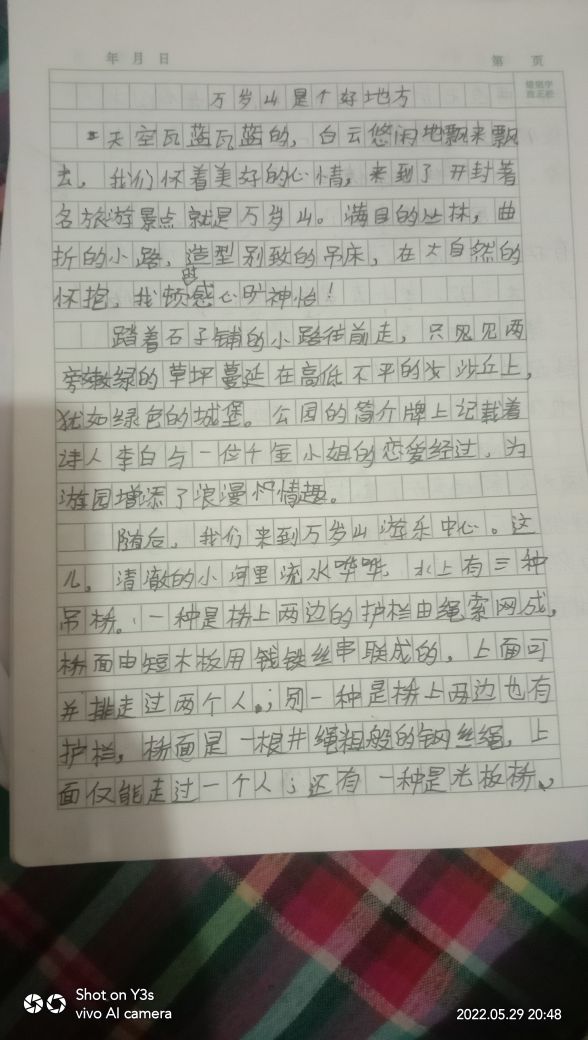 年 月 日
第 页
万岁山是个好地方
天空瓦蓝瓦蓝的，白云悠闲地飘来飘
去。我们怀着美好的心情，来到了开封著
名旅游景点就是万岁山。满目的丛林，曲
折的小路，造型别致的吊床，在大自然的
怀抱，我顿时感心旷神怡！
踏着石子铺的小路往前走，只见见两
旁嫩绿的草坪蔓延在高低不平的沙丘上，
犹如绿色的城堡。公园的简介牌上记载着
诗人李白与一位千金小姐的恋爱经过，为
游园增添了浪漫的情趣。
随后，我们来到万岁山游乐中心。这
儿，清澈的小河里流水哗哗，水上有三种
吊桥。一种是桥上两边的护栏由绳索网成，
桥面由短木板用铁丝串联成的，上面可
并排走过两个人；别一种是桥上两边也有
护栏，桥面是一根井绳粗般的钢丝绳，上
面仅能走过一个人；还有一种是光板桥，
Shot on Y3s
vivo AI camera
2022.05.29 20:48